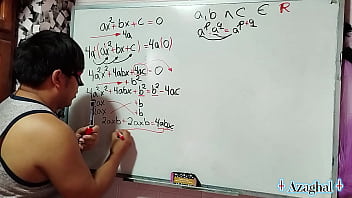 ax²+bx+c=0
4a
4a(ax²+bx+c)=4a(0)
4a²x²+4abx+4ac=0
+b²
4a²x²+4abx+b²=b²-4ac
2ax +b
2ax +b
2axb+2axb=4abx
a,b ∧ c ∈ R
aᵖaᵠ=aᵖ⁺ᵠ
Azaghal